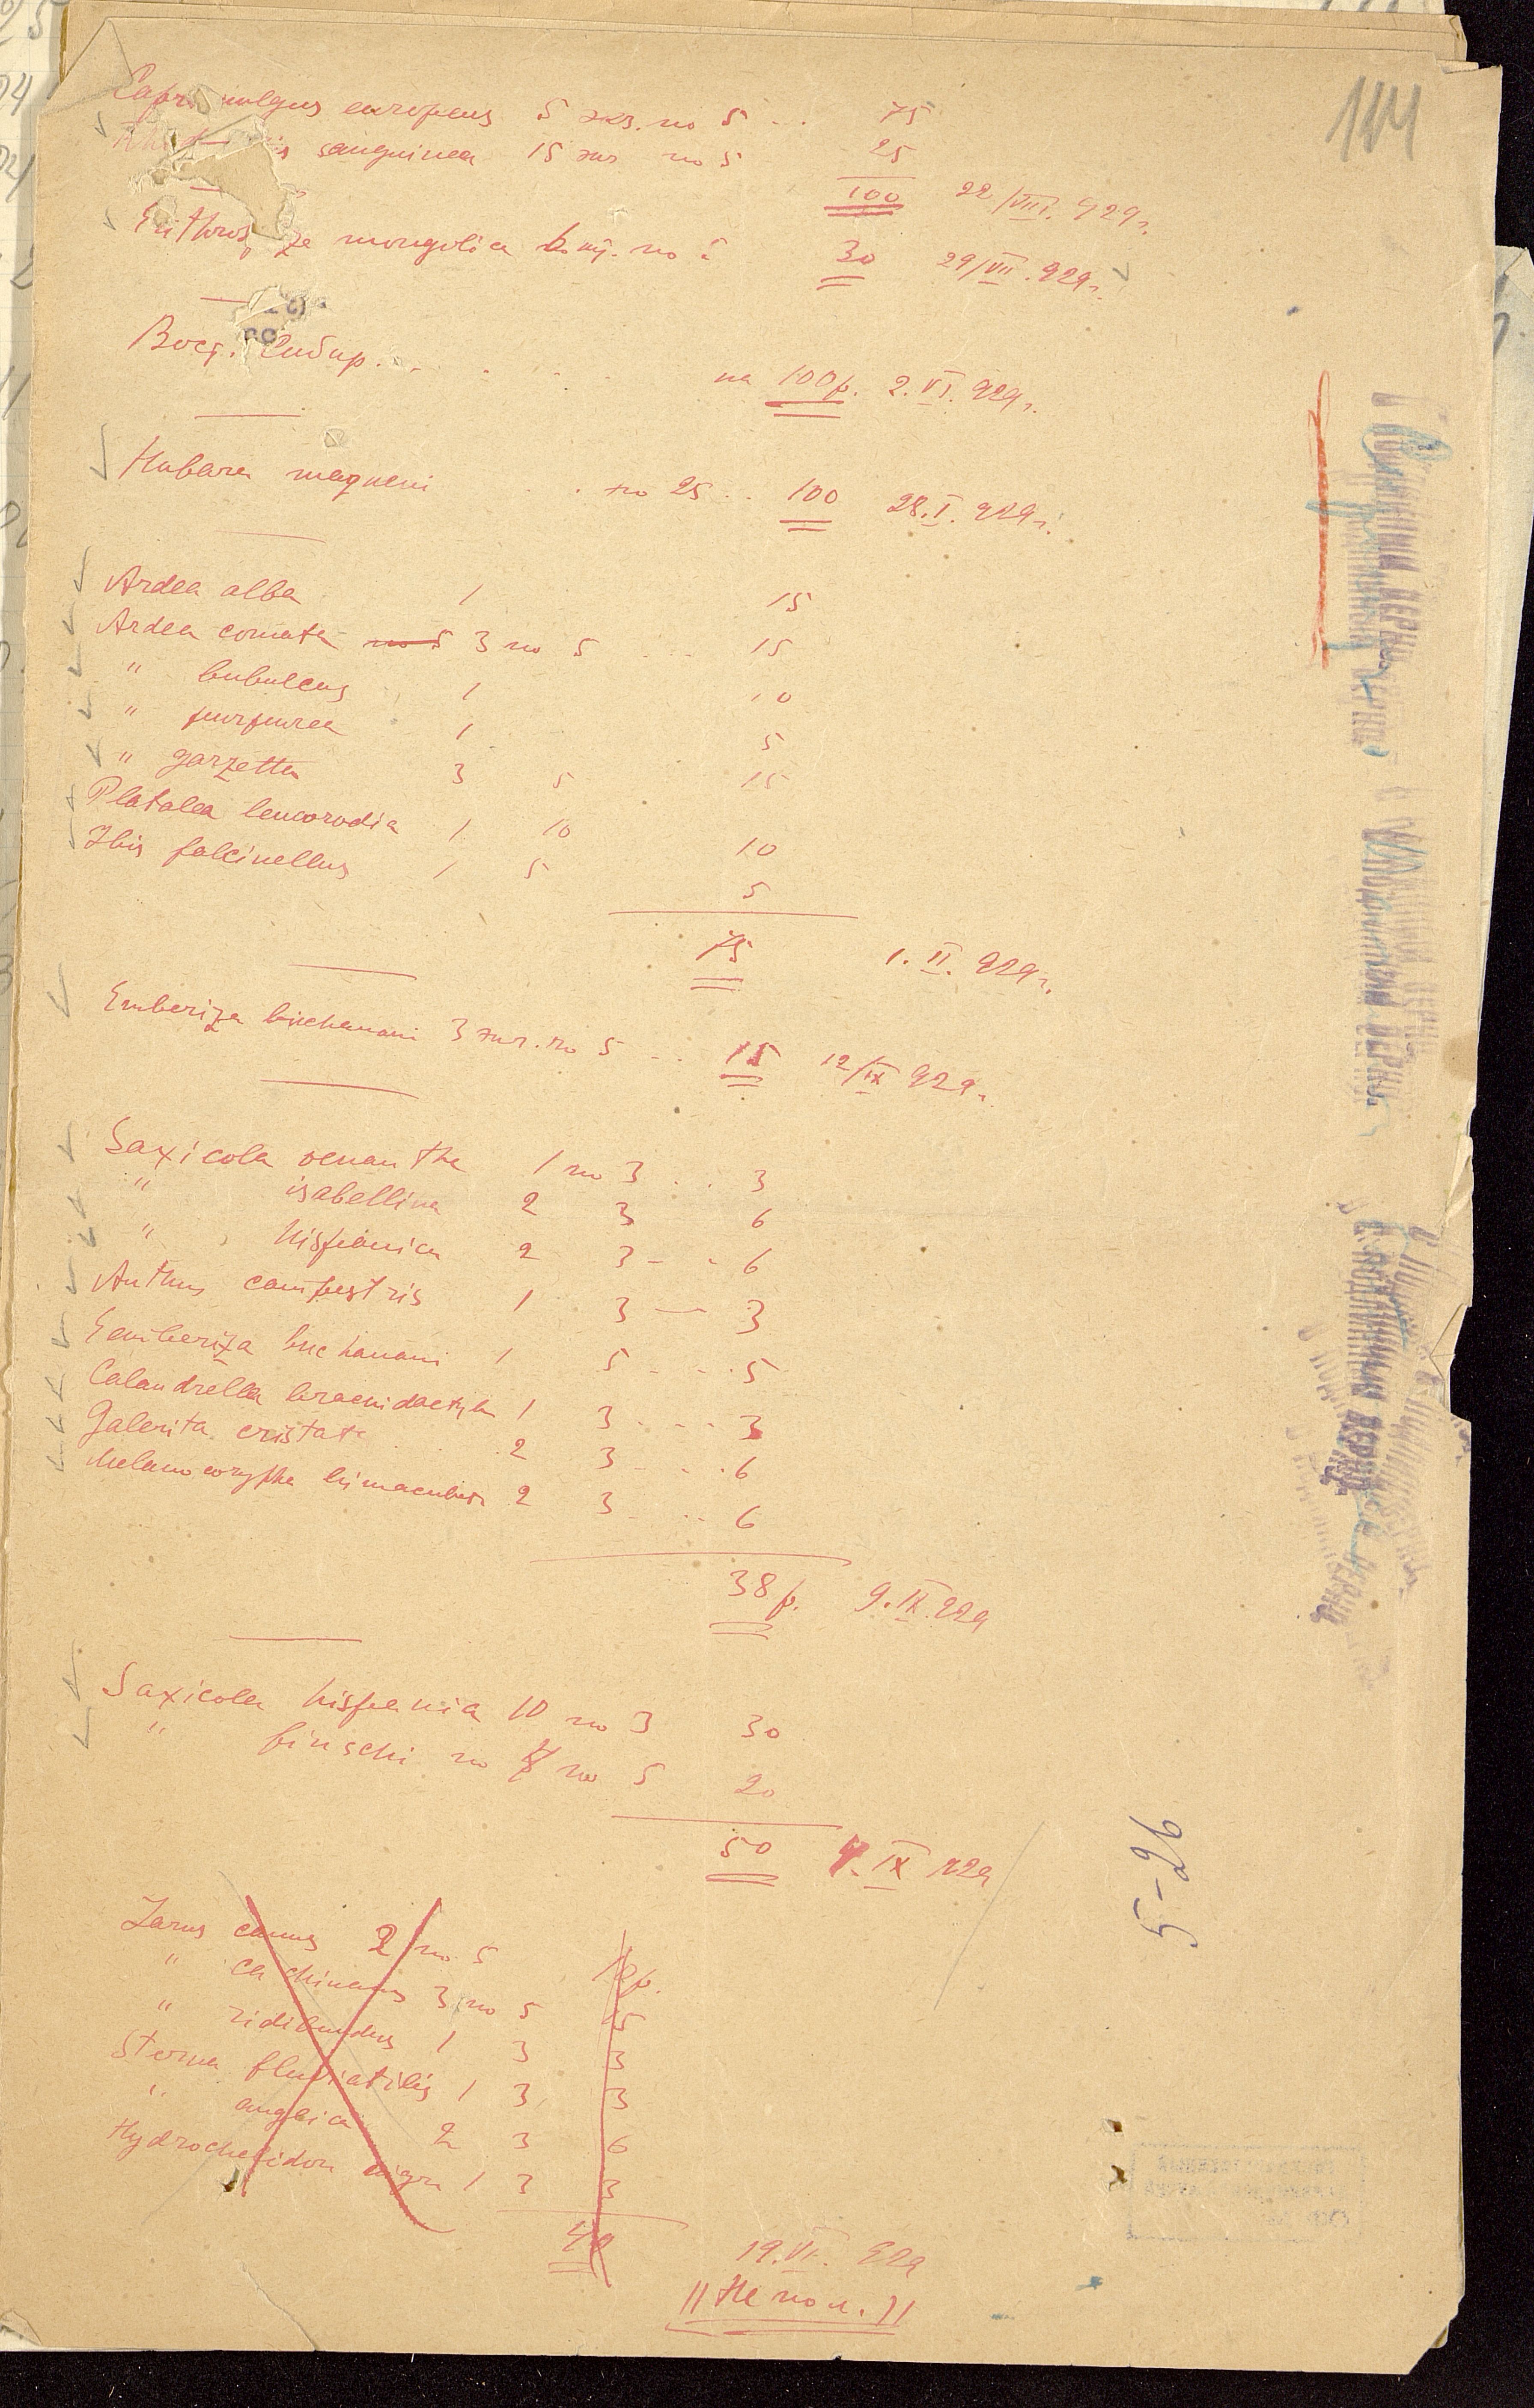 144
Caprimulgus europeus 5 экз. по 5 ... 75
sanguinea 15 экз по 5 25
100 22/VIII. 929 г.
Erithrospiza mongolica 6 по 5 30 29/VII. 929 г.
Вост. Сибир. . . . на 100 р. 2. VI. 929 г.
Hubara maqueni . . по 25 . . 100 28. I. 929 г.
Ardea alba 1 15
Ardea comata по 5 3 по 5 ... 15
" bubulcus 1 10
" purpurea 1 5
" garzetta 3 5 15
Platalea leucorodia 1 10 10
Ibis falcinellus 1 5 5
75 1. II. 929 г.
Emberiza buchanani 3 экз. по 5 ... 15 12/IX 929 г.
Saxicola oenanthe 1 по 3 . . 3
" isabellina 2 3 6
" hispanica 2 3 - - 6
Anthus campestris 1 3 — 3
Emberiza buchanani 1 5 - - . 5
Calandrella brachidactyla 1 3 - - - 3
Galerita cristata 2 3 - . . 6
Melanocorypha bimaculata 2 3 - . . 6
38 р. 9. IX. 929
Saxicola hispania 10 по 3 30
" finschi по 4 по 5 20
50 4. IX 929
5-26
Larus canus 2 по 5 10 р.
" cachinans 3 по 5 15
" ridibundus 1 3 3
Sterna fluviatilis 1 3 3
" anglica 2 3 6
Hydrochelidon nigra 1 3 3
40 19. VI. 929
|| Не пол. ||
С ПОДЛИННЫМ ВЕРНО
С ПОДЛИННЫМ ВЕРНО
С ПОДЛИННЫМ ВЕРНО